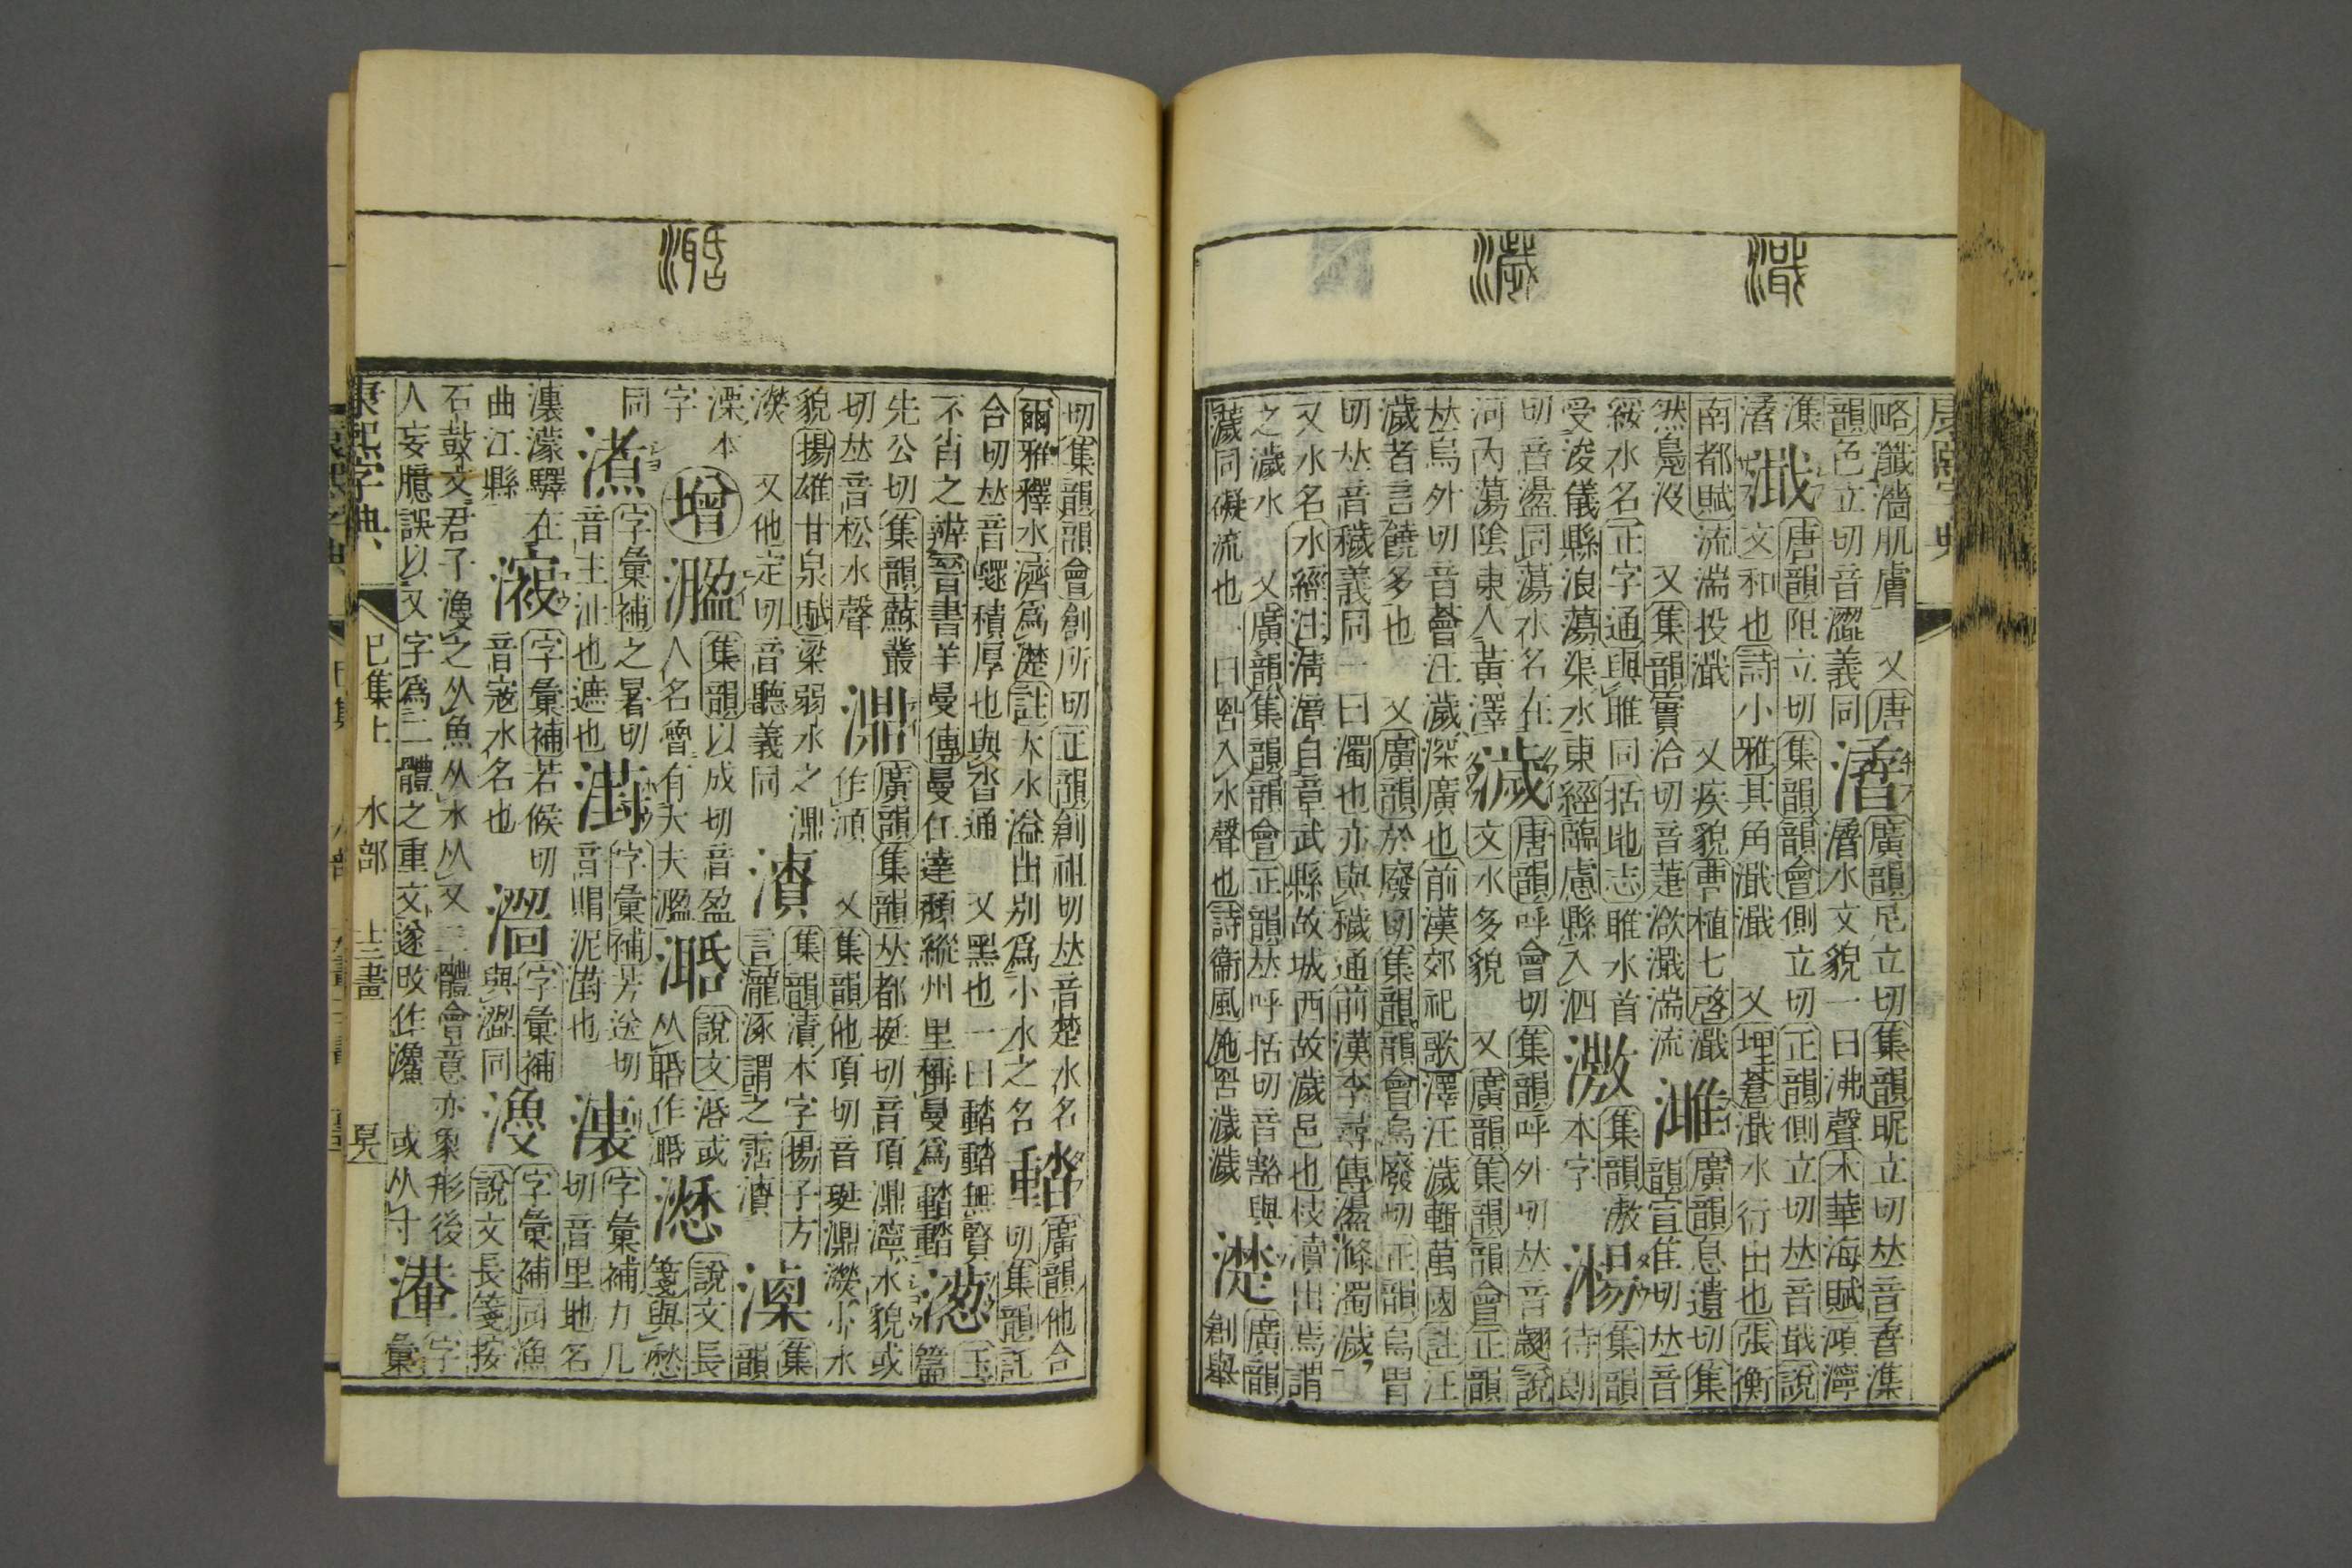 濈
濊
康熙字典
略瀸濇肌膚
又唐
韻色立切音澀義同
潝
廣韻尼立切集韻昵立切𠀤音㬤湒
濳水文貌一曰沸聲木華海賦澒濘
湒
濈
唐韻阻立切集韻韻會側立切正韻側立切𠀤音戢說
文和也詩小雅其角濈濈
又埤蒼濈水行出也張衡
南都賦流湍投濈
又疾貌曹植七啓濈
然鳧沒
又集韻實洽切音萐潝濈湍流
濉
廣韻息遺切集
韻宣隹切𠀤音
綏水名正字通與睢同括地志睢水首
受浚儀縣浪蕩渠水東經臨慮縣入泗
激
集韻激
本字
㵝
集韻
待朗
切音盪同蕩水名在
河內蕩陰東入黃澤
濊
唐韻呼會切集韻呼外切𠀤音翽說
文水多貌
又廣韻集韻韻會正韻
𠀤烏外切音薈汪濊深廣也前漢郊祀歌澤汪濊輯萬國註汪
濊者言饒多也
又廣韻於廢切集韻韻會烏廢切正韻烏胃
切𠀤音穢義同一曰濁也亦與穢通前漢李尋傳盪滌濁濊
又水名水經注淸漳自章武縣故城西故濊邑也枝瀆出焉謂
之濊水
又廣韻集韻韻會正韻𠀤呼括切音豁與
濊同礙流也一曰罟入水聲也詩衞風施罟濊濊
濋
廣韻
創舉
㴰
切集韻韻會創所切正韻創祖切𠀤音楚水名
爾雅釋水濟爲濋註大水溢出別爲小水之名
䵬
廣韻他合
切集韻託
合切𠀤音錔積厚也與沓通
又黑也一曰䵬䵬無賢
不肖之辨晉書羊曼傳曼任達頹縱州里稱曼爲䵬䵬
濍
玉篇
先公切集韻蘇叢
切𠀤音松水聲
濎
廣韻集韻𠀤都挺切音頂濎濘水貌或
作澒
又集韻他頂切音珽濎濙小水
貌揚雄甘泉賦梁弱水之濎
濙
又他定切音聽義同
濆
集韻漬本字揚子方
言瀧涿謂之霑濆
㵤
集
韻
溧本
字
增
㵬
集韻以成切音盈
人名曾有大夫㵬
濫
說文涽或
从昬作㵩
㵵
說文長
箋與愁
同
㵭
字彙補之暑切
音主沚也遮也
濭
字彙補芳送切
音賵泥濭也
㶖
字彙補力几
切音里地名
㶖濛驛在
曲江縣
㵹
字彙補若候切
音寇水名也
濏
字彙補
與澀同
㵖
字彙補同漁
說文長箋按
石鼓文君子漁之从魚从水从又三體會意亦象形後
人妄臆誤以又字爲二體之重文遂改作䲣
或从寸
㶏
字
彙
康熙字典
巳集上
水部
十三畫